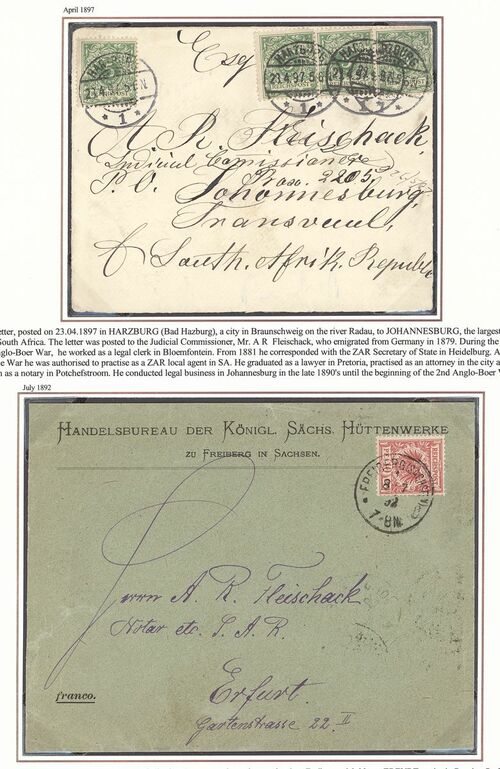 April 1897
HARZBURG
23.4.97.5-6N
1
HARZBURG
23.4.97.5-6N
1
HARZBURG
23.4.97.5-6N
1
REICHSPOST
Esq
A. R. Fleischack,
Judicial Comissioner
P.O. Box. 2205.
Johannesburg,
Transvaal,
South. Afrik. Republic
etter, posted on 23.04.1897 in HARZBURG (Bad Hazburg), a city in Braunschweig on the river Radau, to JOHANNESBURG, the largest
South Africa. The letter was posted to the Judicial Commissioner, Mr. A R Fleischack, who emigrated from Germany in 1879. During the
nglo-Boer War, he worked as a legal clerk in Bloemfontein. From 1881 he corresponded with the ZAR Secretary of State in Heidelburg. A
e War he was authorised to practise as a ZAR local agent in SA. He graduated as a lawyer in Pretoria, practised as an attorney in the city a
n as a notary in Potchefstroom. He conducted legal business in Johannesburg in the late 1890's until the beginning of the 2nd Anglo-Boer W
July 1892
Handelsbureau der Königl. Sächs. Hüttenwerke
zu Freiberg in Sachsen.
REICHSPOST
FREIBERG
8 7
92
7-8N.
Herrn A. R. Fleischack
Notar etc. S. A. R.
Erfurt.
Gartenstrasse 22 II
franco.